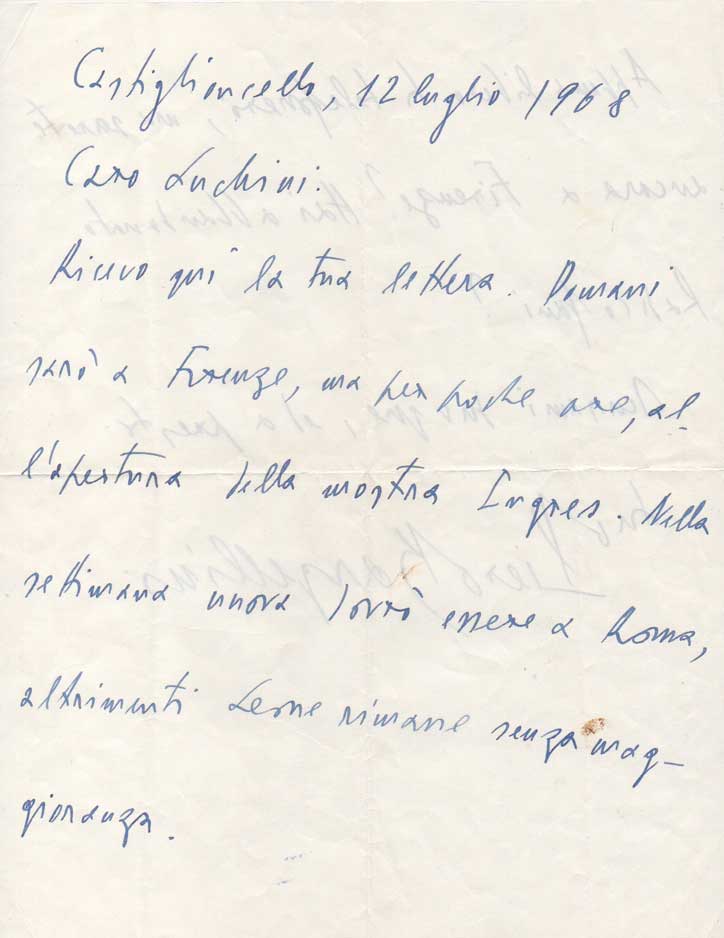 Castiglioncello, 12 luglio 1968
Caro Luchini.
Ricevo qui la tua lettera. Domani
sarò a Firenze, ma per poche ore, al-
l'apertura della mostra Ingres. Nella
settimana nuova dovrò essere a Roma,
altrimenti Leone rimane senza mag-
gioranza.